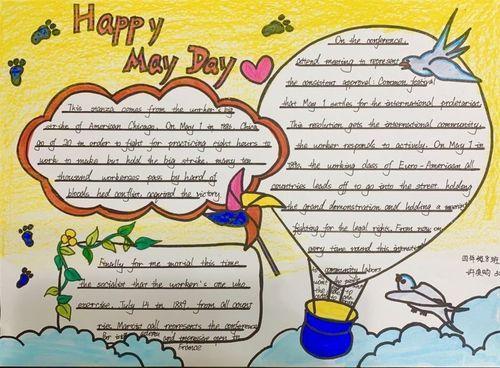 Happy
May Day
This stanza comes from the worker's big
strike of American Chicago. On May 1 in 1886, Chica
go of 20 in order to fight for practicing right hours to
work to make but hold the big strike, many ten
thousand workerses pass by hard of
bloods hed conflict, acquired the victory
Finally for me morial this time
the socialist that the worker's one who
exercise, July 14 in 1889, from all count
ries Marxist call represents the conference
Paris and impressive open to
France
On the conference,
attend meeting to represent
the consistent approval: Common festival
that May 1 settles for the international proletariat
This resolution gets the international community
the worker responds to actively. On May 1 in
1890, the working class of Euro-American all
countries leads off to go into the street, holding
the grand demonstration and holding a
fighting for the legal rights. From now on
every time round this international
the community labors
the people